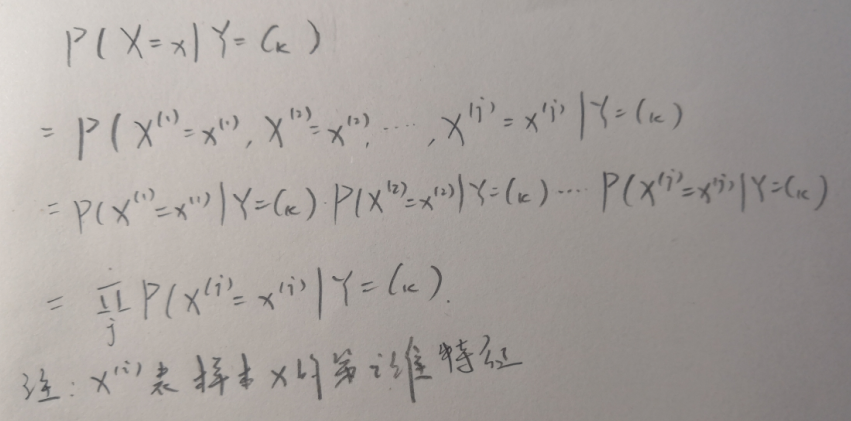 P(X=x|Y=Cₖ)
=P(X⁽¹⁾=x⁽¹⁾, X⁽²⁾=x⁽²⁾, ⋯, X⁽ʲ⁾=x⁽ʲ⁾|Y=Cₖ)
=P(X⁽¹⁾=x⁽¹⁾|Y=Cₖ)·P(X⁽²⁾=x⁽²⁾|Y=Cₖ)⋯P(X⁽ʲ⁾=x⁽ʲ⁾|Y=Cₖ)
=∏ⱼ P(X⁽ʲ⁾=x⁽ʲ⁾|Y=Cₖ).
注: x⁽ⁱ⁾表样本x的第i维特征